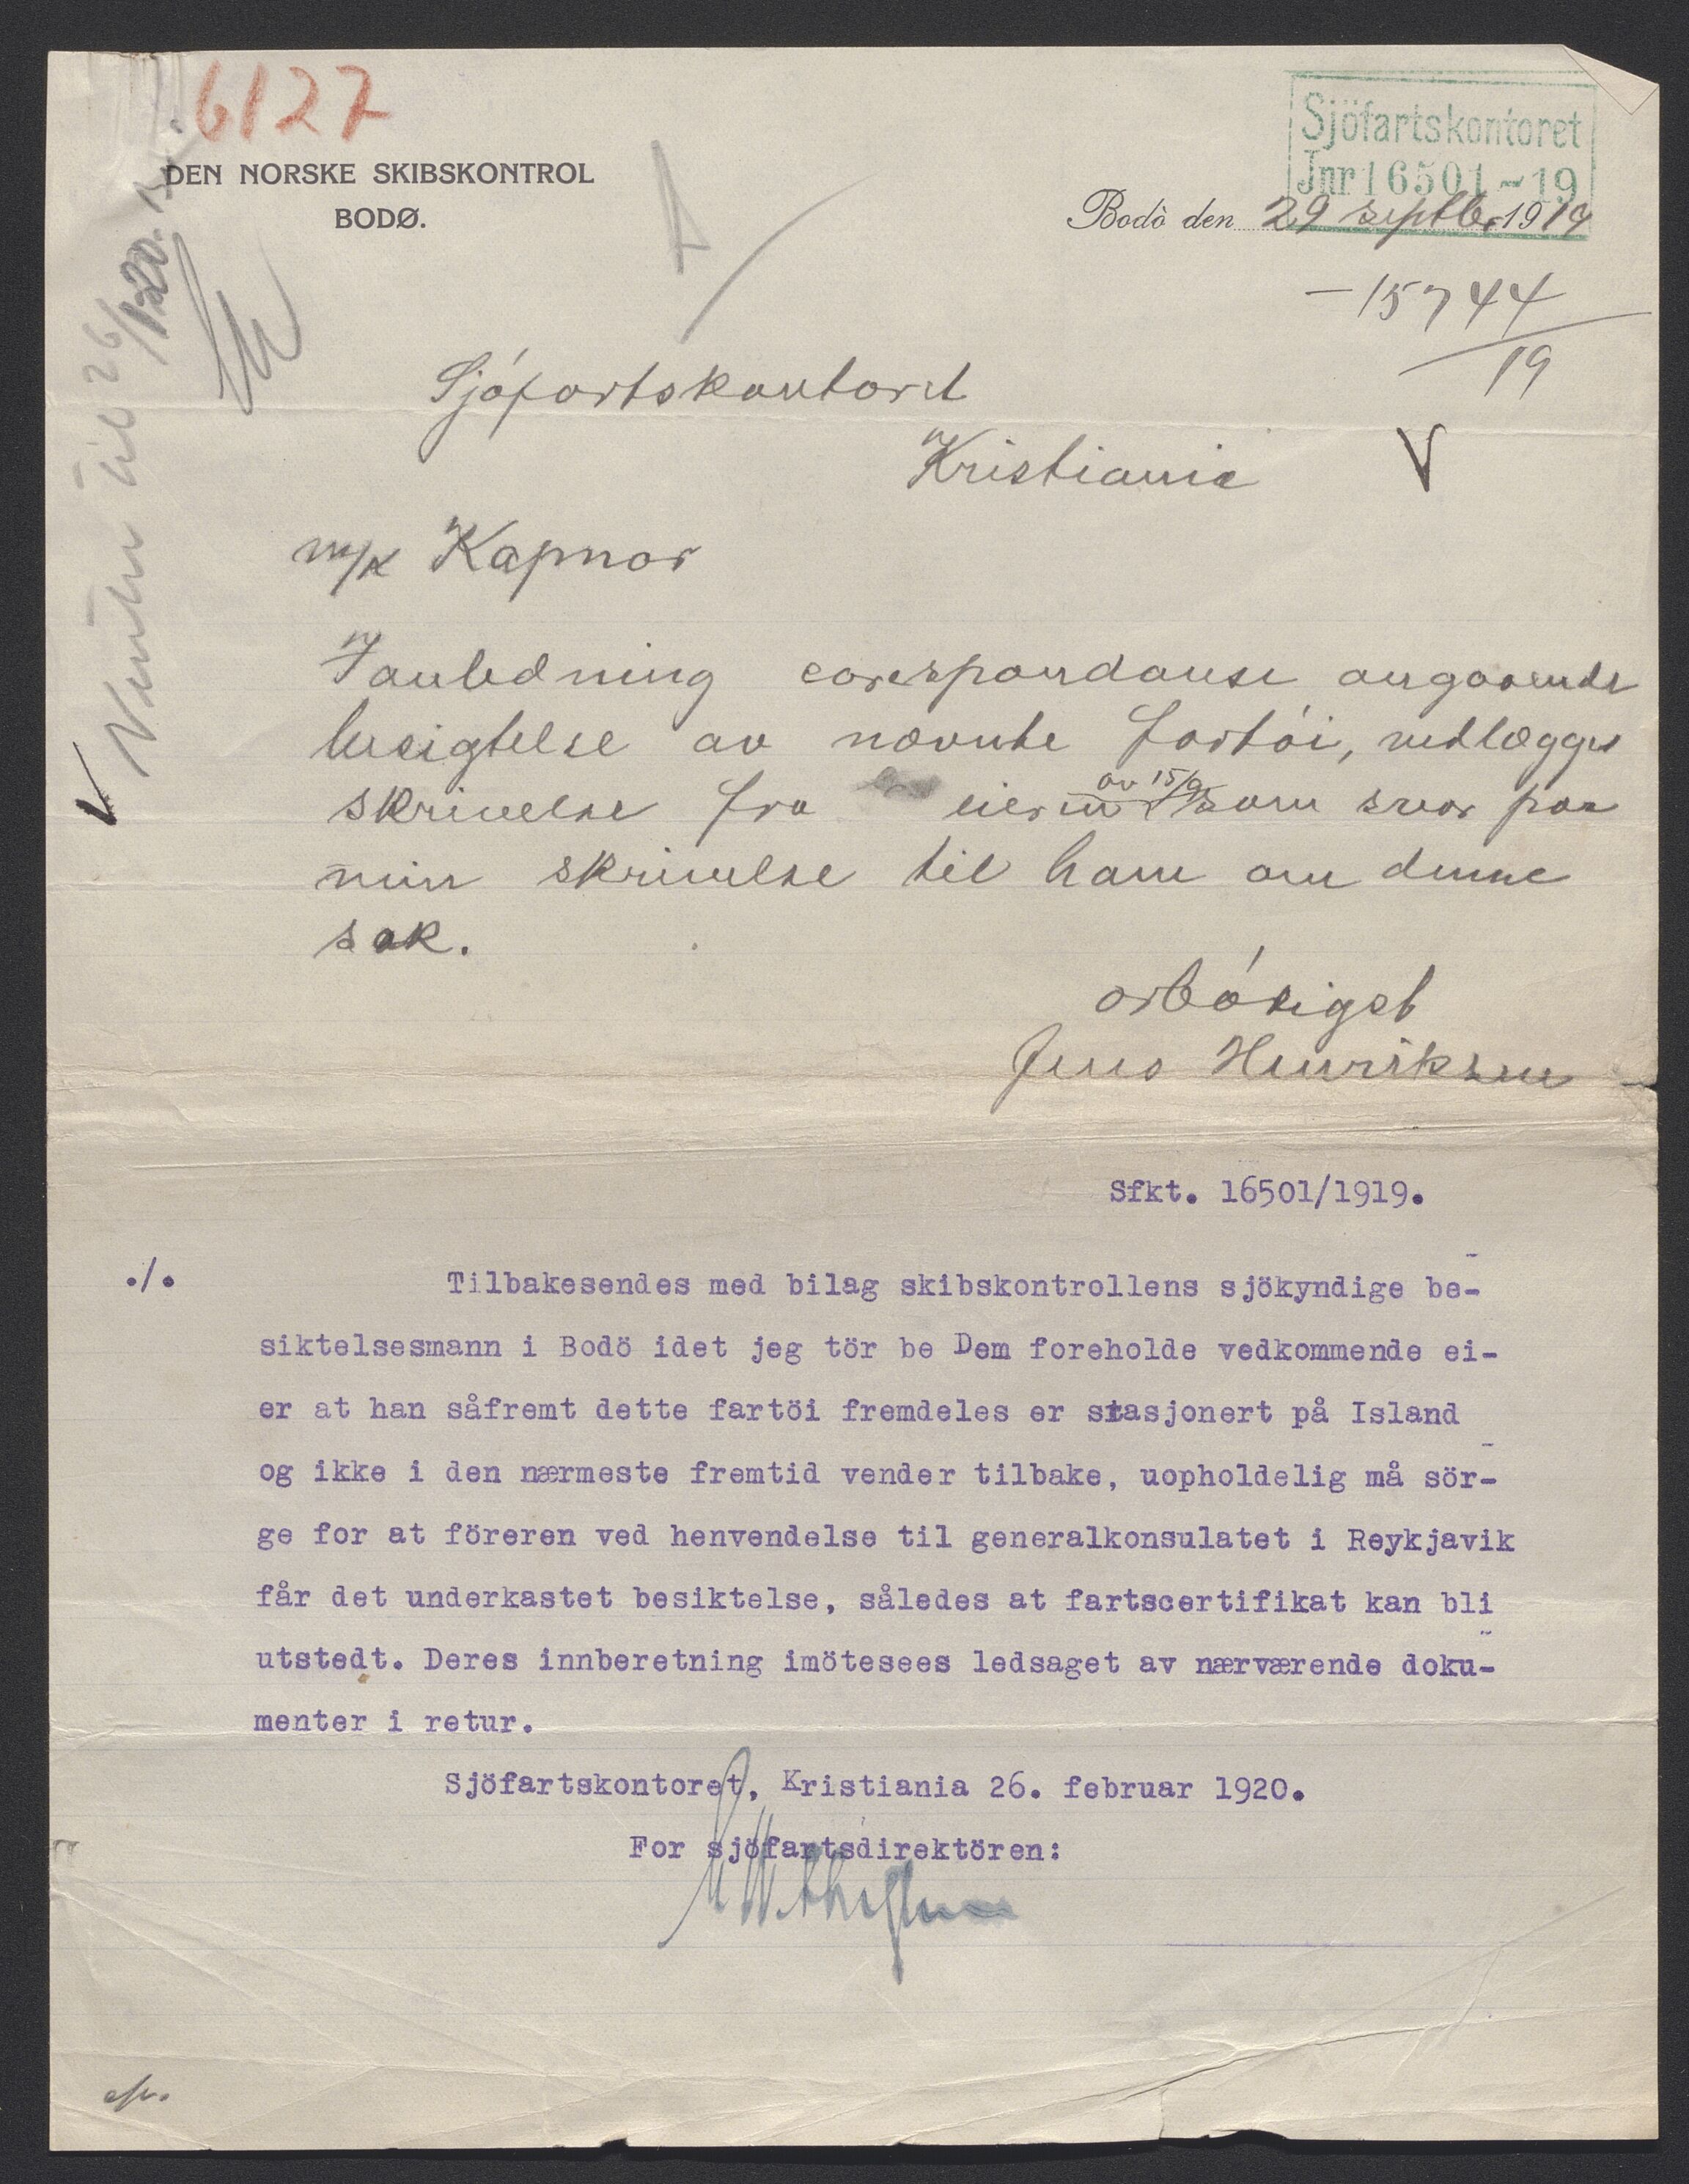 6127
DEN NORSKE SKIBSKONTROL
BODØ.
Sjöfartskontoret
Jnr 16501-19
Bodö den 29 septbr 1919
-15744
19
Sjófartskontoret
Kristiania
m/k Kapnor
I anledning corespondanse angaaende
besigtelse av nævnte fartói, vedlægges
skrivelse fra eieren av 15/9 som svar paa
min skrivelse til ham om denne
sak.
ærbódigst
Jens Henriksen
Venter til 26/1-20.
Sfkt. 16501/1919.
./. Tilbakesendes med bilag skibskontrollens sjökyndige be-
siktelsesmann i Bodö idet jeg tör be Dem foreholde vedkommende ei-
er at han såfremt dette fartöi fremdeles er stasjonert på Island
og ikke i den nærmeste fremtid vender tilbake, uopholdelig må sör-
ge for at föreren ved henvendelse til generalkonsulatet i Reykjavik
får det underkastet besiktelse, således at fartscertifikat kan bli
utstedt. Deres innberetning imötesees ledsaget av nærværende doku-
menter i retur.
Sjöfartskontoret, Kristiania 26. februar 1920.
For sjöfartsdirektören: